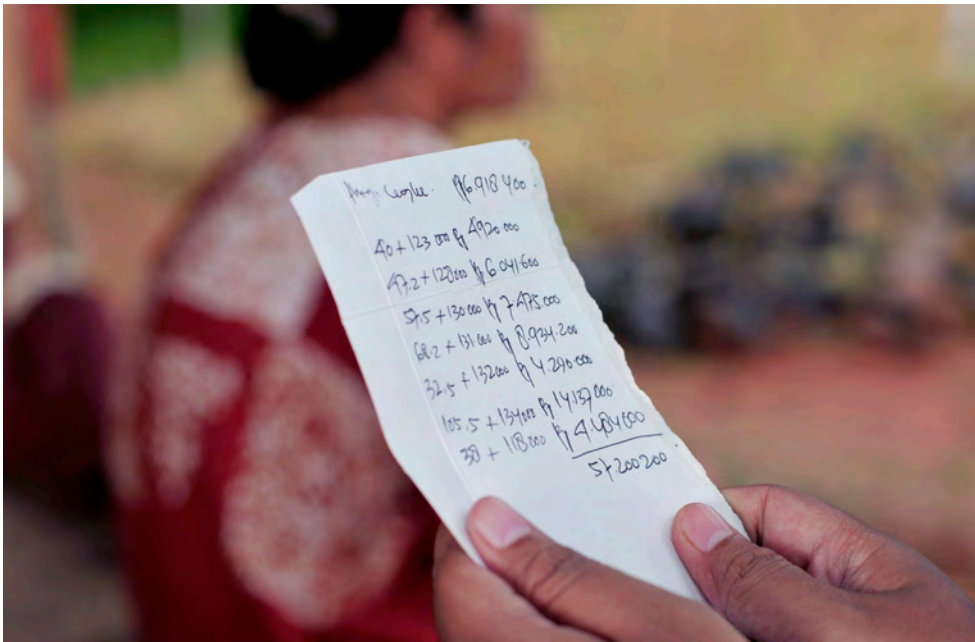 Cengke. Rp 6.918 400.
40 + 123 000 Rp 4920 000
47.2 + 128000 Rp 6.041.600
57.5 + 130 000 Rp 7.475 000
68.2 + 131.000 Rp 8.934.200
32.5 + 132000 Rp 4.290.000
105.5 + 134000 Rp 14137000
38 + 118000 Rp 4.484000
57200200